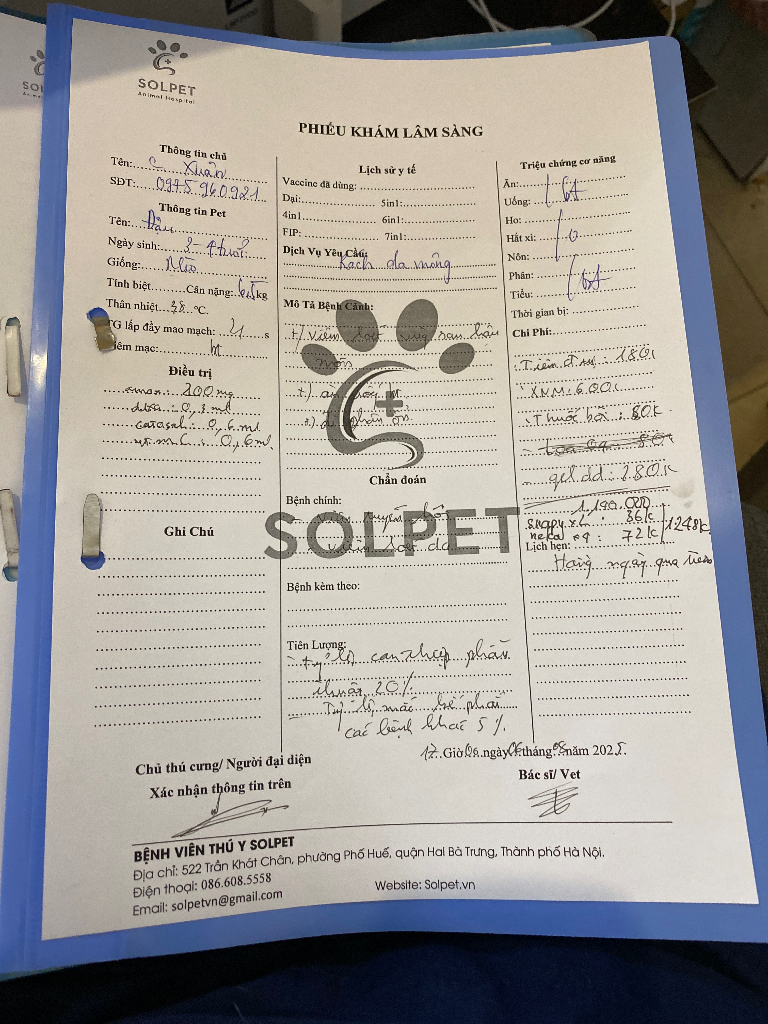 SOLPET
Animal Hospital
PHIẾU KHÁM LÂM SÀNG
Thông tin chủ
Tên: C Xuân
SĐT: 0975960921
Thông tin Pet
Tên: Đậu
Ngày sinh: 3-4 tuổi
Giống:
Tính biệt Cân nặng: 6,5 kg
Thân nhiệt 38 °C.
TG lấp đầy mao mạch: 21 s
Niêm mạc: bt
Điều trị
amox: 200mg
: 0,3 ml
catosal: 0,6 ml
C: 0,6 ml
Ghi Chú
Lịch sử y tế
Vaccine đã dùng:
Dại: 5in1:
4in1 6in1:
FIP: 7in1:
Dịch Vụ Yêu Cầu:
Rách da mông
Mô Tả Bệnh Cảnh:
+) Viêm loét vùng sau hậu
môn
+) ăn uống bt
+)
SOLPET
Chẩn đoán
Bệnh chính:
Bệnh kèm theo:
Tiên Lượng:
Tỷ lệ can thiệp phẫu
thuật 20%
Tỷ lệ mắc
các bệnh khác 5%.
Triệu chứng cơ năng
Ăn:
Uống: bt
Ho:
Hắt xì: 0
Nôn:
Phân:
Tiểu: bt
Thời gian bị:
Chi Phí:
Tiền đ trị: 180k
XNM: 600k
Thuốc bôi: 80k
gel dd: 280k
1.190.000
snappy x1: 36k
neka *9: 72k 1248k
Lịch hẹn:
Hàng ngày qua tiêm
17 Giờ 06 ngày 06 tháng 08 năm 2025.
Chủ thú cưng/ Người đại diện
Xác nhận thông tin trên
Bác sĩ/ Vet
BỆNH VIÊN THÚ Y SOLPET
Địa chỉ: 522 Trần Khát Chân, phường Phố Huế, quận Hai Bà Trưng, Thành phố Hà Nội.
Điện thoại: 086.608.5558
Email: solpetvn@gmail.com
Website: Solpet.vn